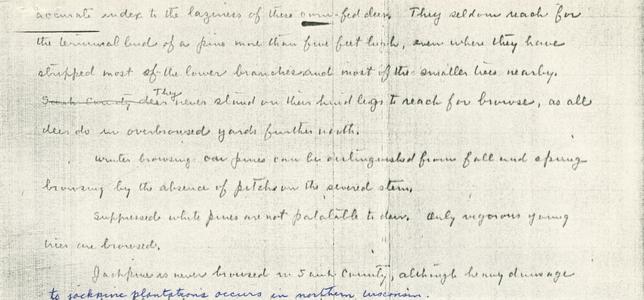 accurate index to the laziness of these corn-fed deer. They seldom reach for
the terminal bud of a pine more than five feet high, even where they have
stripped most of the lower branches and most of the smaller trees nearby.
Sauk County deer They never stand on their hind legs to reach for browse, as all
deer do in overbrowsed yards further north.
Winter browsing on pines can be distinguished from fall and spring
browsing by the absence of pitch on the severed stem.
Suppressed white pines are not palatable to deer. Only vigorous young
trees are browsed.
Jackpine is never browsed in Sauk County, although heavy damage
to jackpine plantations occurs in northern Wisconsin.